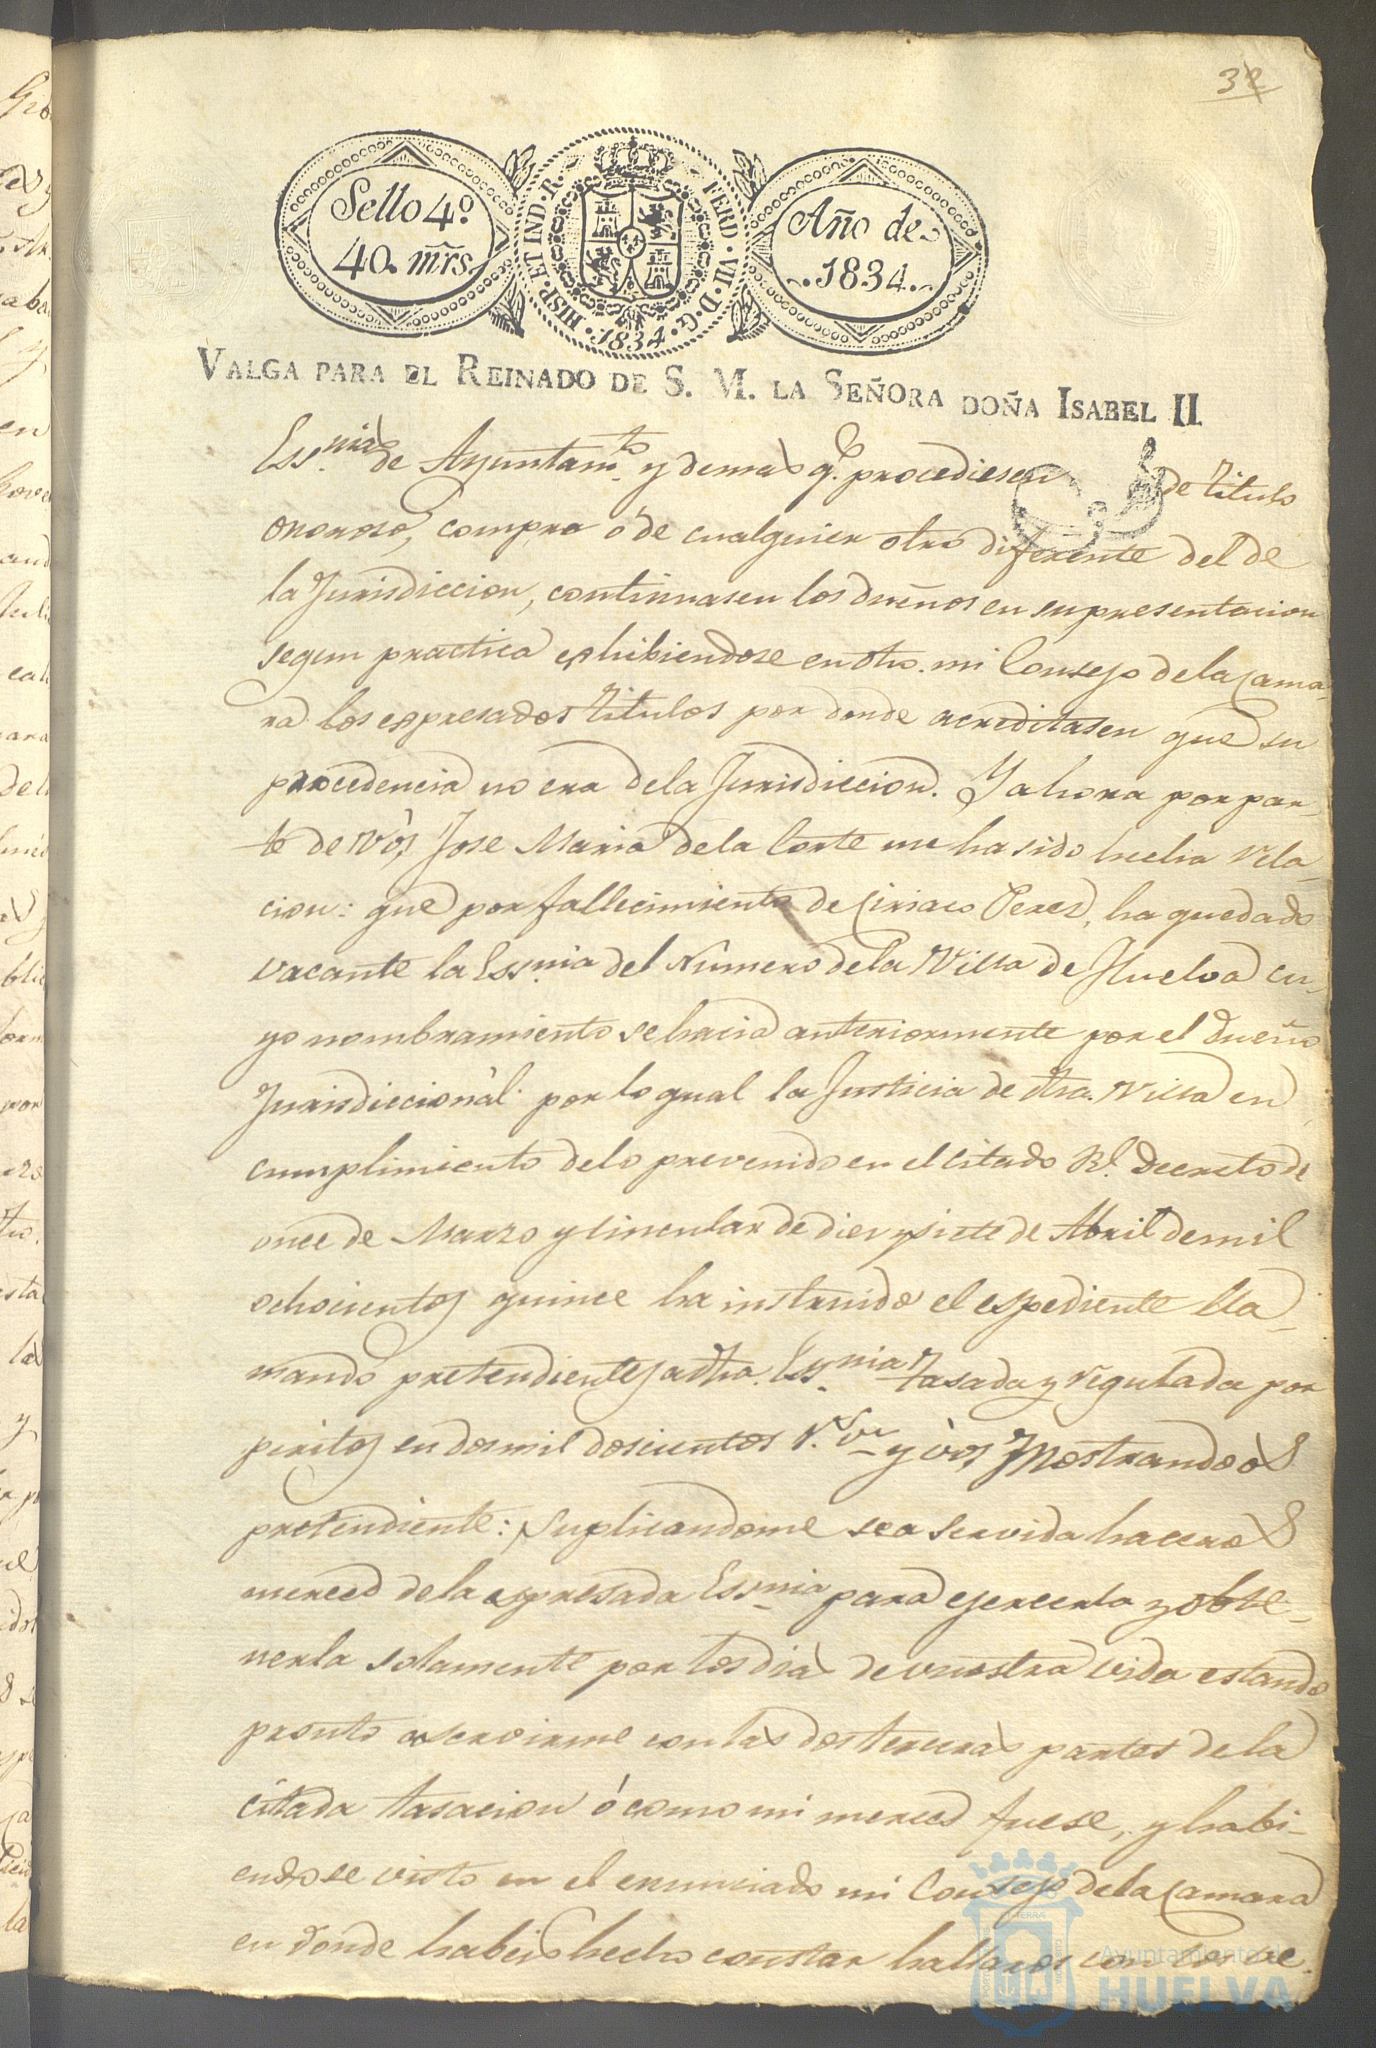 32
Sello 4º
40. mrs.
HISP. ET IND. R. FERD. VII. D. G.
1834.
Año de
1834.
VALGA PARA EL REINADO DE S. M. LA SEÑORA DOÑA ISABEL II
Ess.nias de Ayuntam.to y demas q.e procediesen de titulo
oneroso, compra ó de cualquier otro diferente del de
la Jurisdiccion, continuasen los dueños en su presentacion
segun practica exhibiendose en dho. mi Consejo de la Cama-
ra los espresados titulos por donde acreditasen que su
procedencia no era de la Jurisdiccion. Y ahora por par-
te de vòs Jose Maria de la Corte me ha sido hecha rela-
cion: que por fallecimiento de Ciriaco Perez, ha quedado
vacante la Ess.nia del Número de la Villa de Huelva cu-
yo nombramiento se hacia anteriormente por el dueño
Jurisdiccional: por lo qual la Justicia de dha. Villa en
cumplimiento de lo prevenido en el citado Rl. Decreto de
once de Marzo y circular de diez y siete de Abril de mil
ochocientos quince ha instruido el espediente lla-
mando pretendientes a dha. Ess.nia tasada y regulada por
peritos en dos mil doscientos r.s v.n y vos mostrandoos
pretendiente: Suplicandome sea servida haceros
merced de la espresada Ess.nia para ejercerla y obte-
nerla solamente por los dias de vuestra vida estando
pronto a servirme con las dos terceras partes de la
citada tasacion ó como mi merced fuese, y habi-
endose visto en el enunciado mi Consejo de la Camara
en donde habeis hecho constar hallaros con los re-
Ayuntamiento de
HUELVA